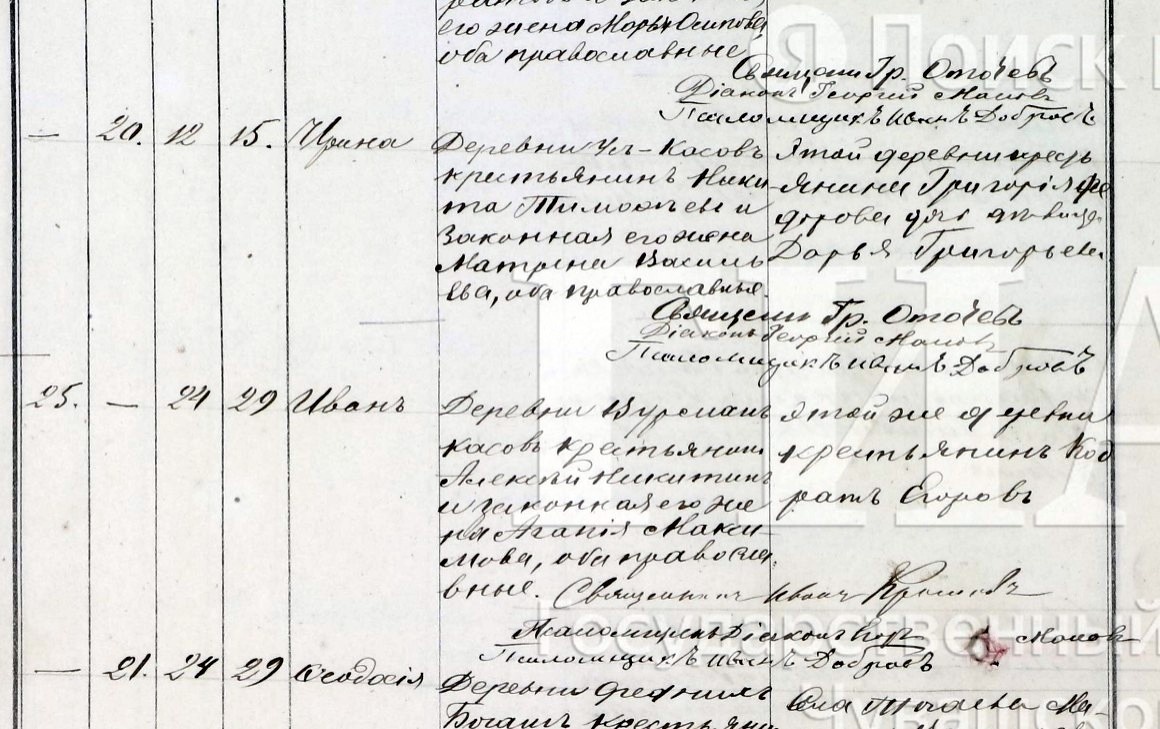 его жена Марья Осипова
оба православные
Священ. Гр. Оточевъ
Діаконъ Георгій
Псаломщикъ Иванъ Добровъ
— 20. 12 15. Ирина
Деревни Касовъ
крестьянинъ Ники-
та Тимофеевъ и
законная его жена
Матрена Василь-
ева, оба православные.
этой деревни кресть-
янина Григорія Фе
дорова
Дарья Григорьева
Священ. Гр. Оточевъ
Діаконъ Георгій
Псаломщикъ Иванъ Добровъ
25. — 24 29 Иванъ
Деревни Вурманъ
касовъ крестьянинъ
Алексѣй Никитинъ
и законная его же
на Агапія Макси-
мова, оба правосла-
вные.
этой же деревни
крестьянинъ Код
ратъ Егоровъ
Священникъ Иванъ
Діаконъ
Псаломщикъ Иванъ Добровъ
— 21. 24 29 Ѳеодосія
Деревни
крестьяни
Села
Я Поиск
ГИА
Государственный
Чувашско